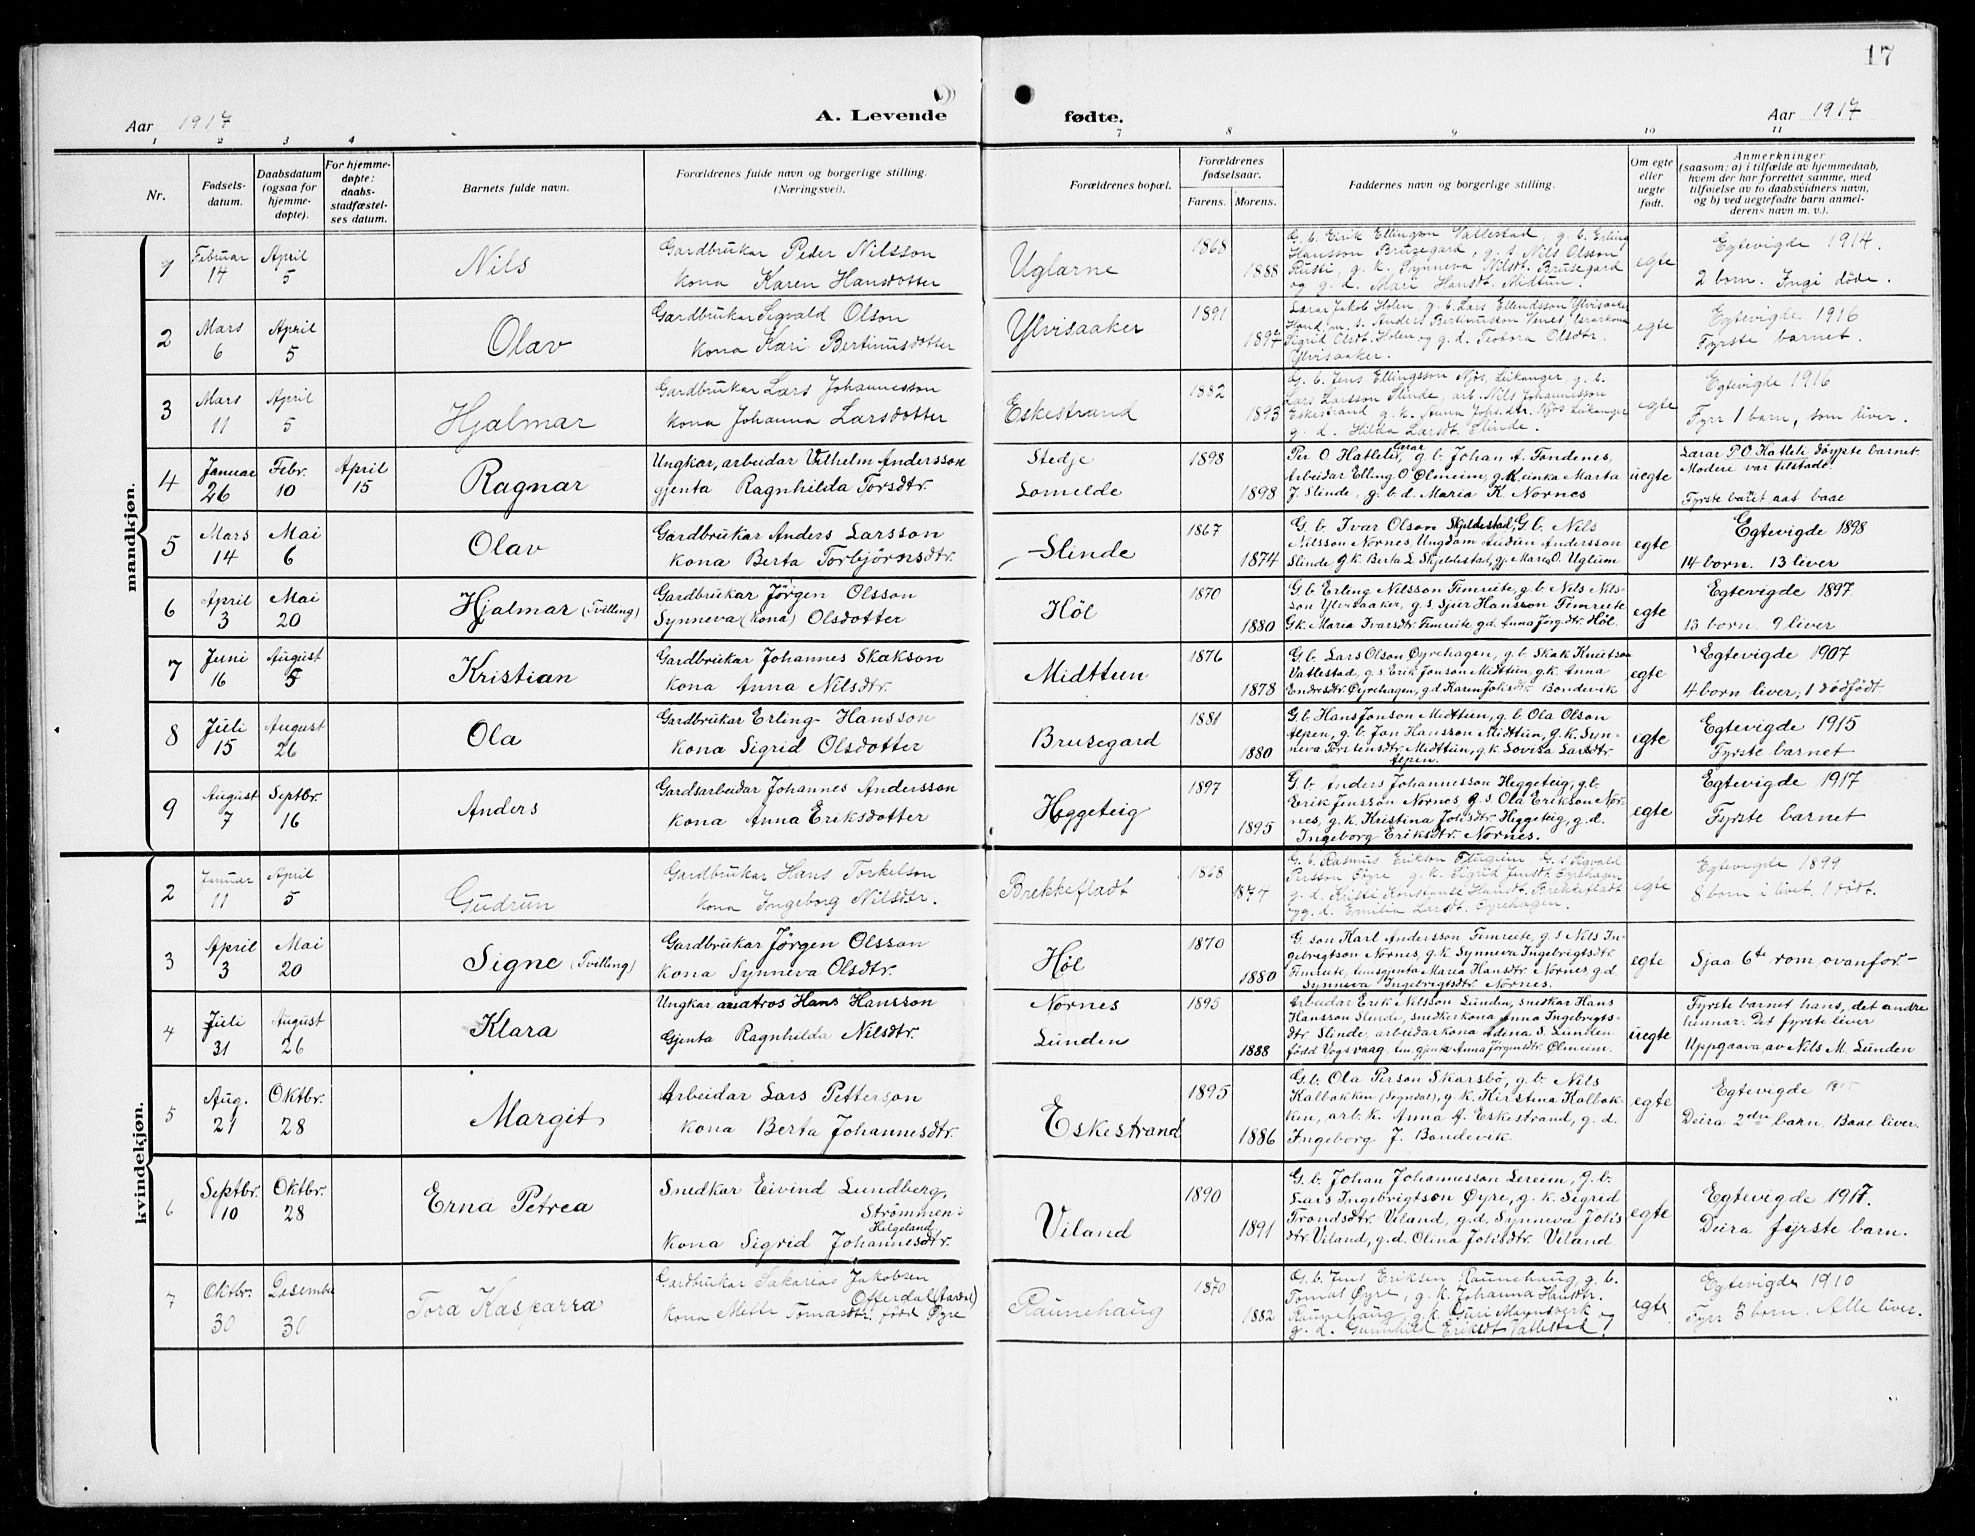 17
Aar 1917 A. Levende fødte. Aar 1917
1 2 3 4 7 8 9 10 11
Nr. Fødsels-datum. Daabsdatum (ogsaa for hjemme-døpte). For hjemme-døpte: daabs-stadfæstel-ses datum. Barnets fulde navn. Forældrenes fulde navn og borgerlige stilling. (Næringsvei). Forældrenes bopæl. Forældrenes fødselsaar. Farens. Morens. Faddernes navn og borgerlige stilling. Om egte eller uegte født. Anmerkninger (saasom: a) i tilfælde av hjemmedaab, hvem der har forrettet samme, med tilføielse av to daabsvidners navn, og b) ved uegtefødte barn anmel-derens navn m. v.).
mandkjøn.
1 Februar 14 April 5 Nils Gardbrukar Peder Nilsson
kona Karen Hansdotter Uglarne 1868 1888 G. b. Erik Ellingson Vallestad, g. b. Erling
Hansson Brusegard, g. s Nils Olson
Rusti, g. k. Synneva Nilsdt. Brusegard
og g. d. Mari Hansdt. Midtun. egte Egtevigde 1914.
2 born. Ingi døde.
2 Mars 6 April 5 Olav Gardbrukar Sigvald Olson
kona Kari Bertinusdotter Ylvisaaker 1891 1897 Lærar Jakob Holen, g. b. Lars Ellendsson Ylvisaaker
Handm. s. Anders Bertinusson Venes, lærarkona
Sigrid Olsdt. Holen og g. d. Teodora Olsdtr.
Ylvisaaker. egte Egtevigde 1916
Fyrste barnet.
3 Mars 11 April 5 Hjalmar Gardbrukar Lars Johannesson
kona Johanna Larsdotter Eskestrand 1882 1893 G. b. Jens Ellingsson Njøs, Leikanger g. b.
Lars Larsson Slinde, arb. Nils Johannesson
Eskestrand g. k. Anna Johs.dtr. Njøs Leikanger
g. d. Hilda Larsdt. Slinde. egte Egtevigde 1916
Fyrr 1 barn, som liver.
4 Januar 26 Febr. 10 April 15 Ragnar Ungkar, arbeidar Vilhelm Andersson
gjenta Ragnhilda Torsdtr. Stedje
Lomelde 1898 1898 Per O Hatlelid, lærar g. b. Johan A. Tondenes,
Arbeidar Elling O Ølmeim, g. k. einka Marta
J. Slinde, g. b. d. Maria K Nornes uegte Lærar P.O Hatleli døypte barnet.
Moderi var tilstade.
Fyrste barnet aat baae
5 Mars 14 Mai 6 Olav Gardbrukar Anders Larsson
kona Berta Torbjörnsdtr. Slinde 1867 1874 G. b. Ivar Olson Skjeldestad, G. b. Nils
Nilsson Nornes, Ungdom Audun Andersson
Slinde, g. k. Berta L Skjeldestad, gj. Maria O. Uglum egte Egtevigde 1898
14 born. 13 liver
6 April 3 Mai 20 Hjalmar (Tvilling) Gardbrukar Jörgen Olsson
Synneva (kona) Olsdotter Höl 1870 1880 G. b. Erling Nilsson Fimreite, g. b. Nils Nils-
son Ylvisaaker, g. s Sjur Hansson Fimreite
G. k. Maria Ivarsdtr Fimreite, g. d. Anna Jörg.dtr. Höl egte Egtevigde 1897.
13 born. 9 liver
7 Juni 16 August 5 Kristian Gardbrukar Johannes Skakson
kona Anna Nilsdtr. Midttun 1876 1878 G. b. Lars Olson Øyrehagen, g. b. Skak Knutson
Vatlestad, g. s Erik Jonson Midttun, g. k. Anna
Endresdtr. Øyrehagen, g. d Karen Johsdtr. Bondevik egte Egtevigde 1907
4 born liver, 1 dödfödt
8 Juli 15 August 26 Ola Gardbrukar Erling Hansson
kona Sigrid Olsdotter Brusegard 1881 1880 G. b. Hans Jonson Midttun, g. b. Ola Olson
Alpen, g. b. Jon Hansson Midttun, g. K. Syn-
neva Torsteinsdtr Midttun, g. k. Lovisa Larsdtr
Alpen. egte Egtevigde 1915
Fyrste barnet
9 August 7 Septbr. 16 Anders Gardsarbeidar Johannes Andersson
kona Anna Eriksdotter Heggeteig 1897 1895 G. b. Anders Johannesson Heggeteig, g. b.
Erik Jensson Nornes g. s. Ola Erikson Nor-
nes, g. k. Kristina Johsdtr. Heggeteig, g. d.
Ingeborg Eriksdtr. Nornes. egte Egtevigde 1917
Fyrste barnet
kvindekjøn.
2 Januar 11 April 5 Gudrun Gardbrukar Hans Torkelson
kona Ingeborg Nilsdtr. Brekkefladt 1868 1874 G. b. Rasmus Erikson Flugeim G. s Sigvald
Persson Øyre g. k. Sigrid Jensdt. Øyrehagen
g. d. Kristi Konstanse Hansdt. Brekkefladt
og g. d. Emilia Larsdt. Øyrehagen. egte Egtevigde 1899
8 born i livet. 1 dødt.
3 April 3 Mai 20 Signe (Tvilling) Gardbrukar Jörgen Olsson
kona Synneva Olsdtr. Höl 1870 1880 G. son Karl Andersson Fimreite, g. s Nils In-
gebrigtson Nornes, g. k. Synneva Ingebrigtsdtr
Fimreite, tenesgjenta Maria Hansdtr. Nornes g. d
Synneva Ingebrigtsdtr. Nornes. egte Sjaa 6te rom ovanfor.
4 Juli 31 August 26 Klara Ungkar, matros Hans Hansson
Gjenta Ragnhilda Nilsdtr. Nornes
Lunden 1895 1888 Arbeidar Erik Nilsson Lunden, snedkar Hans
Hansson Slinde, snedkerkona Anna Ingebrigts-
dtr Slinde, arbeidarkona Adena S. Lunden
född Vogsvaag, ten. gjenta Anna Jörgensdtr Ølmeim. uegte Fyrste barnet hans, det andre
hennar. Det fyrste liver
Uppgaava av Nils M. Lunden
5 Aug. 21 Oktbr. 28 Margit Arbeidar Lars Petterson
kona Berta Johannesdtr. Eskestrand 1895 1886 G. b. Ola Person Skarsbö, g. b. Nils
Kalbakken (Sogndal), g. k. Kirstina Kalbak-
ken, arb. k. Anna A. Eskestrand, g. d.
Ingeborg J. Bondevik. egte Egtevigde 1915
Deira 2dre barn. Baae liver.
6 Septbr. 10 Oktbr. 28 Erna Petrea Snedkar Eivind Lundberg,
Strömmen i
Helgeland
kona Sigrid Johannesdtr. Viland 1890 1891 G. b. Johan Johannesson Lereim, g. b.
Lars Ingebrigtson Øyre, g. k. Sigrid
Trondsdtr. Viland, g. d. Synneva Johs-
dtr. Viland, g. d. Olina Johsdtr. Viland egte Egtevigde 1917.
Deira fyrste barn.
7 Oktbr. 30 Desember 30 Tora Kasparra Gardbrukar Sakarias Jakobsen
Offerdal (Aardal)
kona Mette Tomasdtr, född Øyre Raunehaug 1870 1882 G. b. Jens Eriksen Raunehaug, g. b.
Tomas Øyre, g. k. Johanna Hansdtr.
Raunehaug g. k. Guri
g. d. Gunnhild Eriksdt Vatlestad egte Egtevigde 1910
Fyrr 3 born. Alle liver.